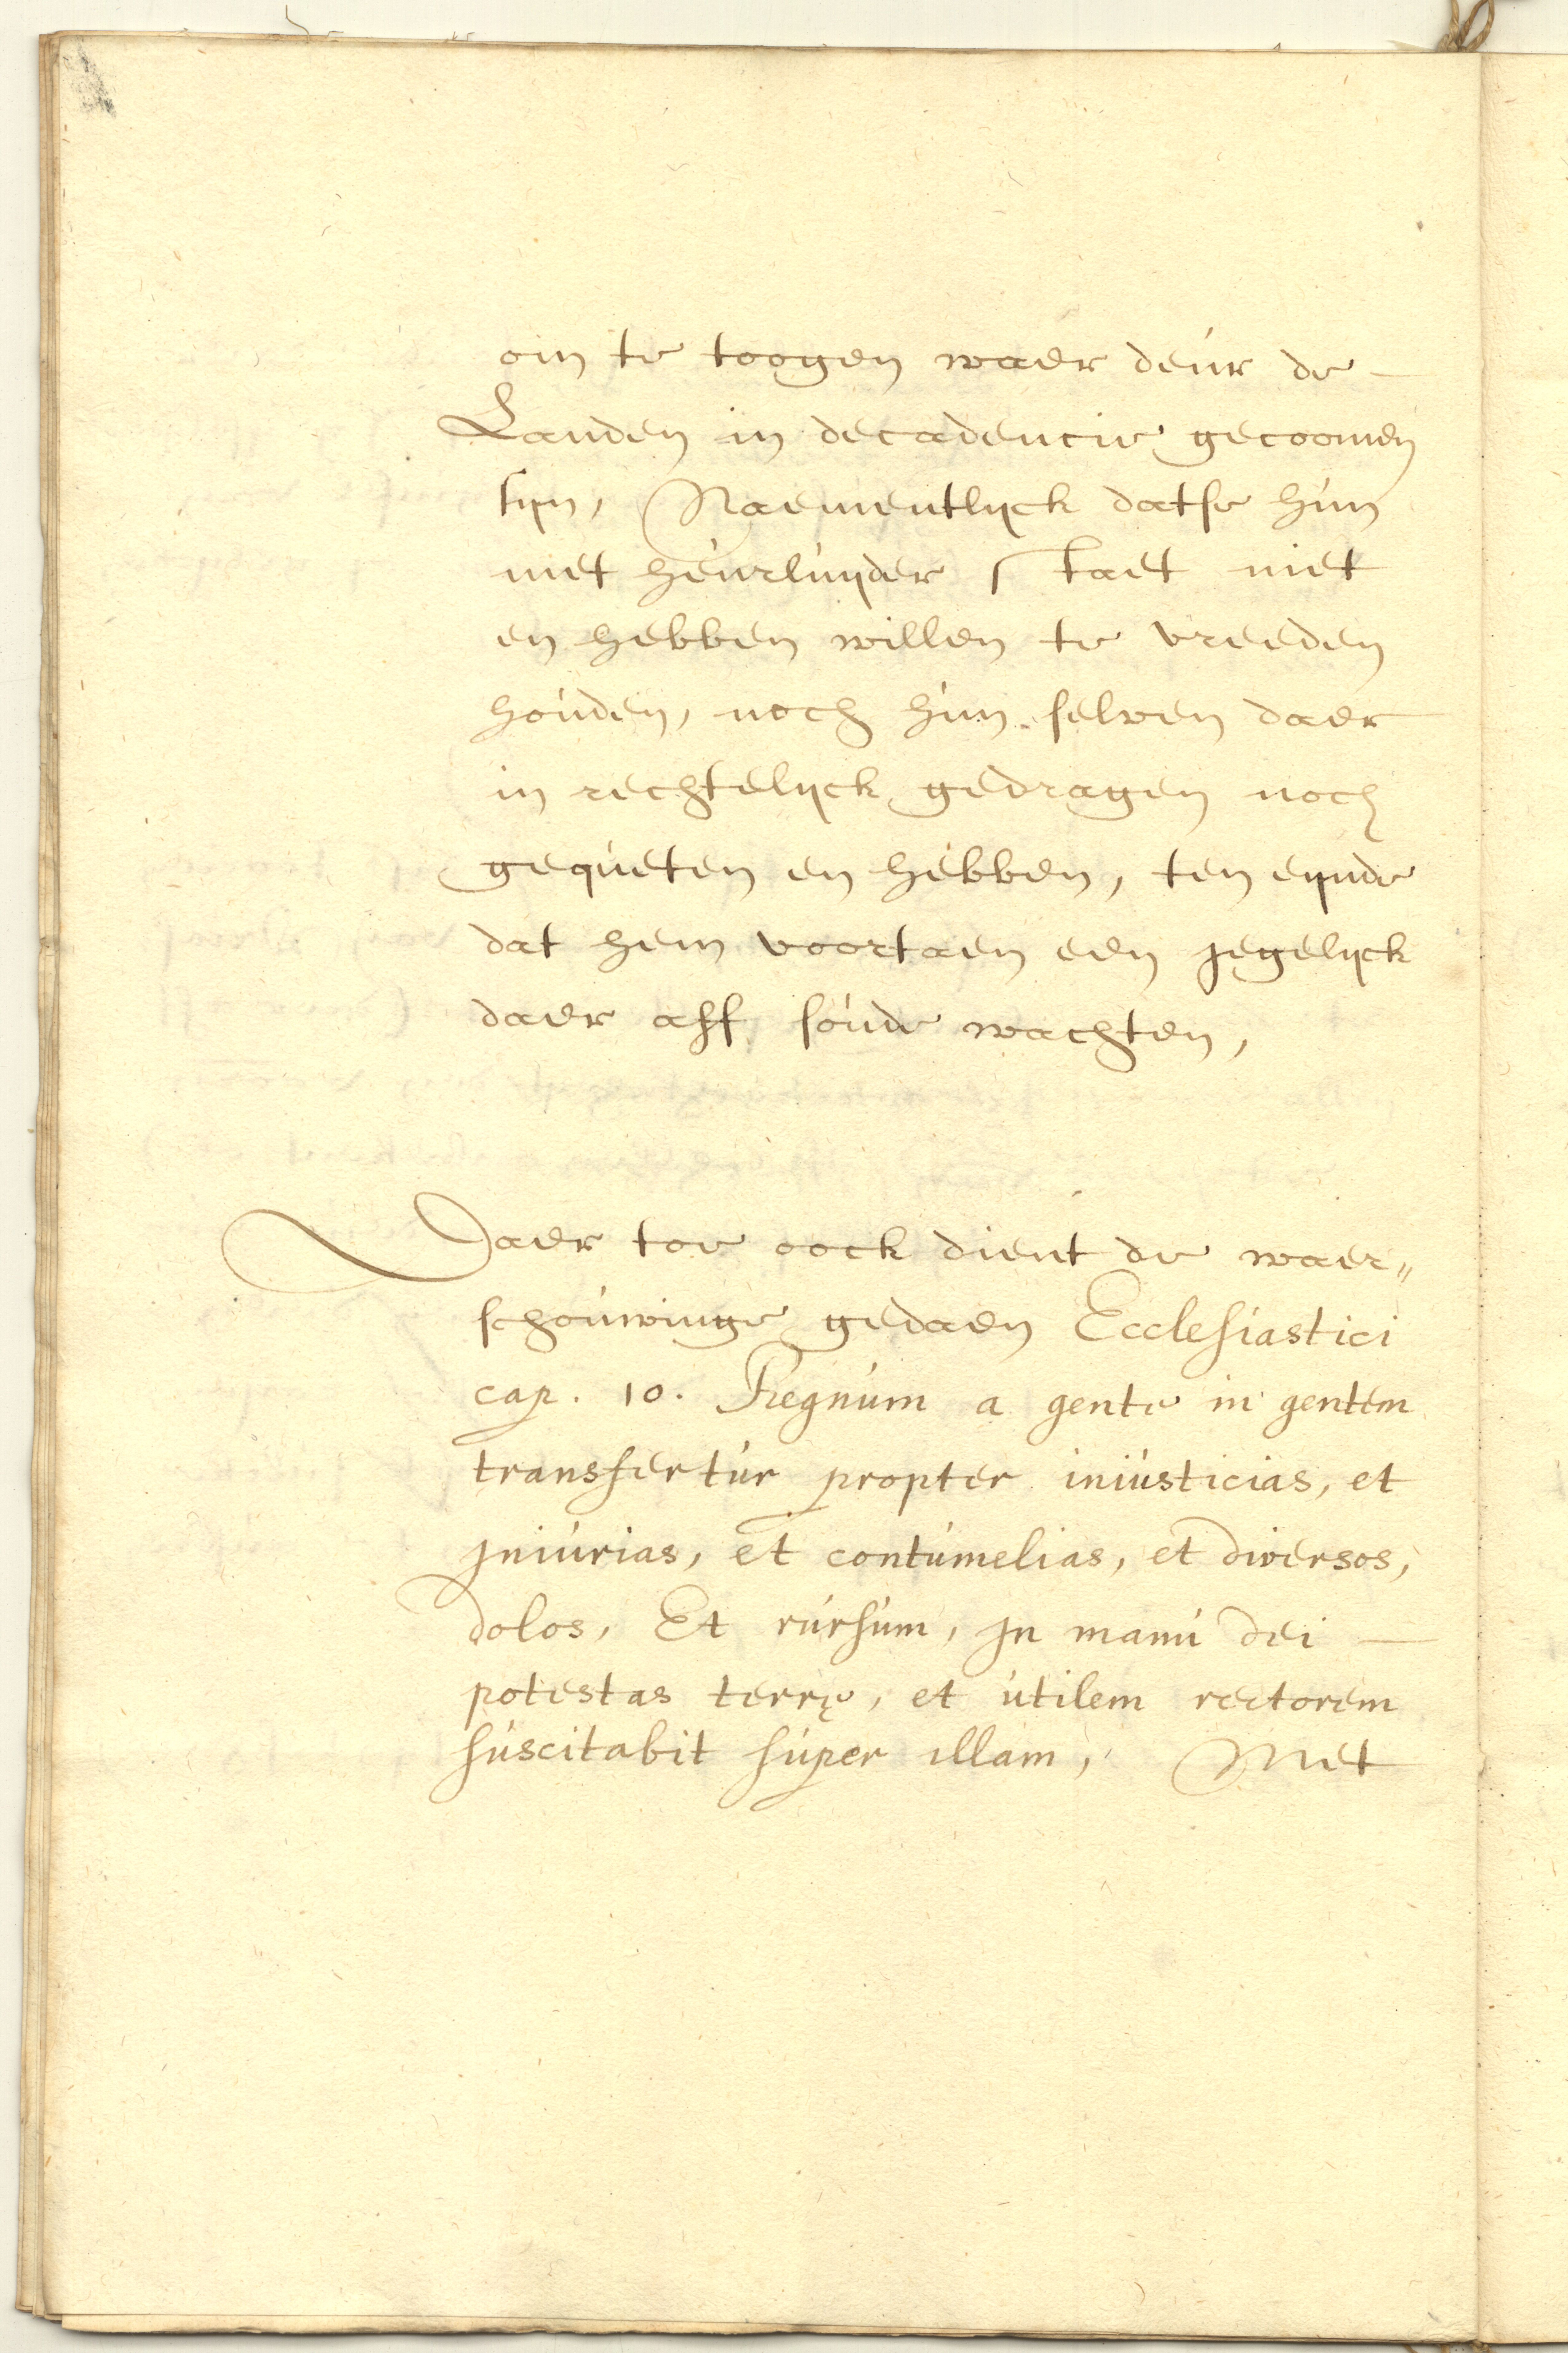 om te toogen waer deur de —
Landen in decadencie gecoomen
sijn, Naementlijck datse hun
met heurluijder staet niet
en hebben willen te vreeden
houden, noch hun selven daer
in rechtelijck gedragen noch
gequeten en hebben, ten eijnde
dat hem voortaen een jegelijck
daer aff soude wachten,
Daer toe oock dient de waer„
schouwinge gedaen Ecclesiastici
cap. 10. Regnum a gente in gentem
transfertur propter iniusticias, et
Iniurias, et contumelias, et diversos,
dolos, Et rursum, In manu Dei —
potestas terrę, et utilem rectorem
suscitabit super illam, Met